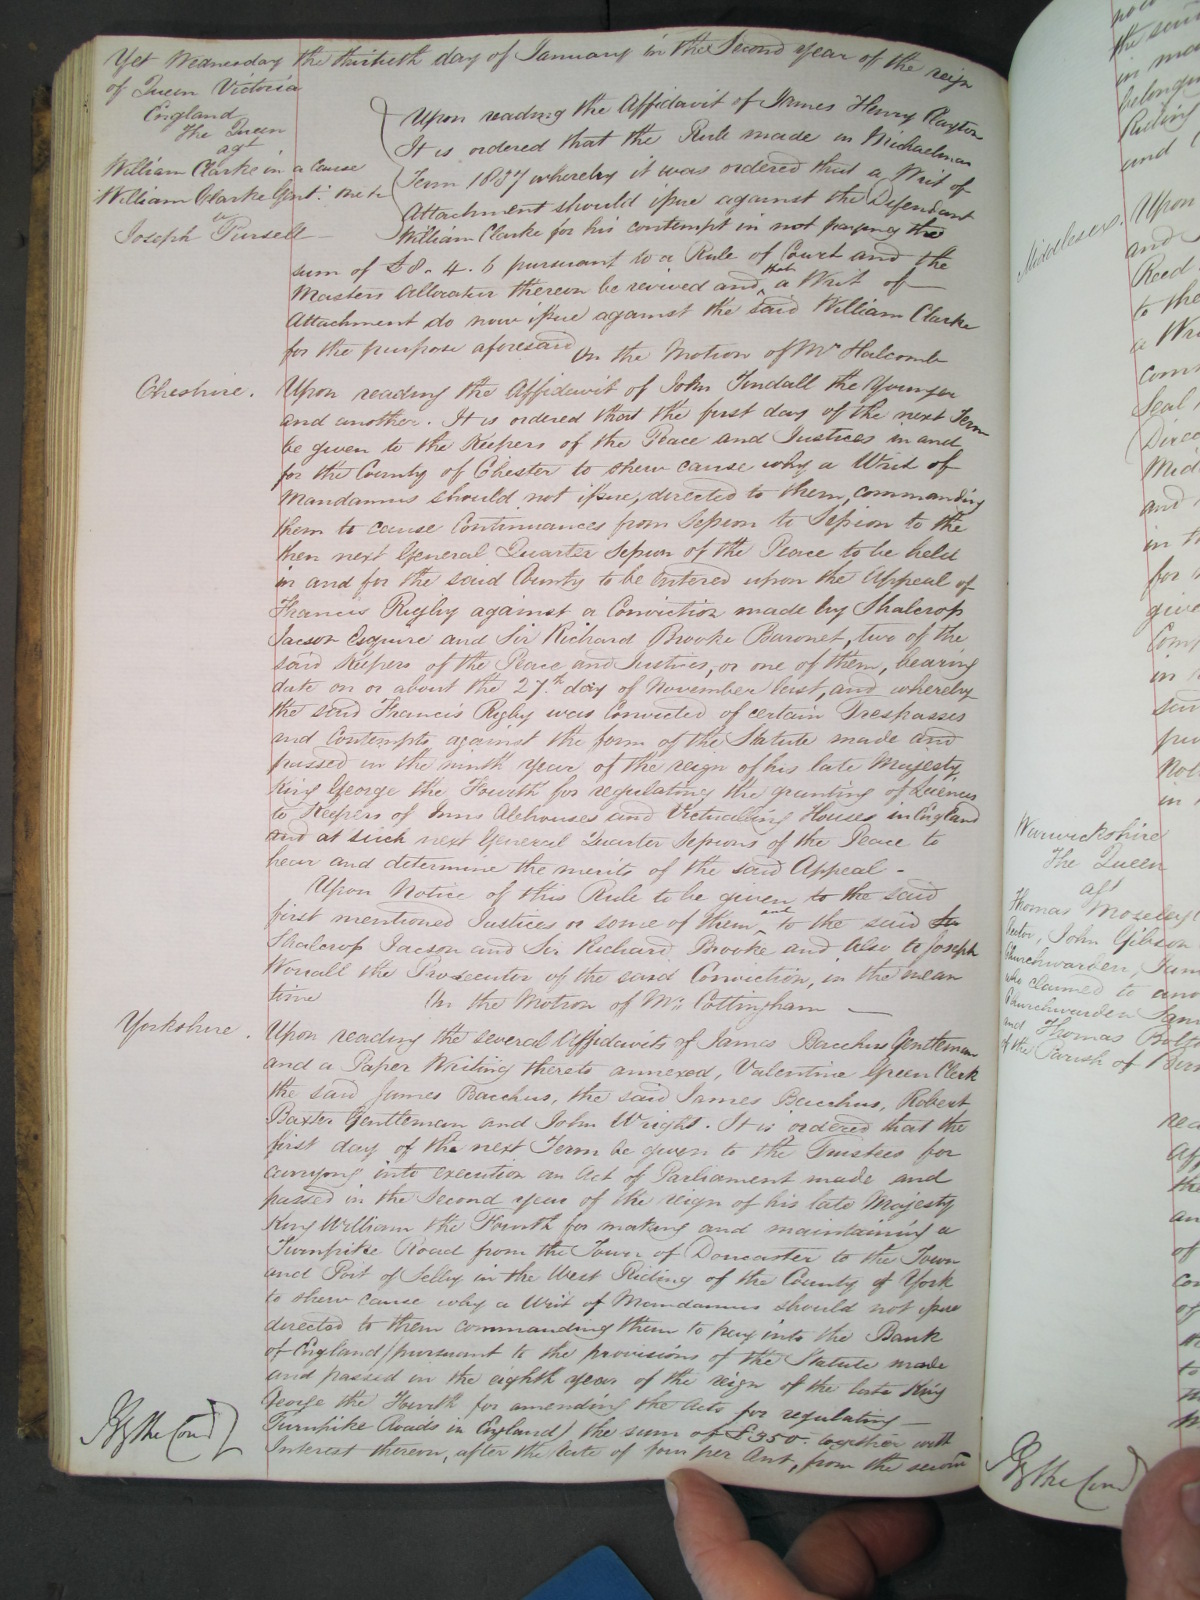 Yet Wednesday the thirtieth day of January in the Second year of the reign
of Queen Victoria
England
The Queen
agt
William Clarke in a Cause
William Clarke Gent: one &c
v
Joseph Pursell
Upon reading the Affidavit of James Henry Clayton
It is ordered that the Rule made in Michaelmas
Term 1837 whereby it was ordered that a Writ of
Attachment should issue against the Defendant
William Clarke for his contempt in not paying the
sum of £8. 4. 6 pursuant to a Rule of Court and the
Masters Allocatur thereon be revived and that a Writ of
Attachment do now issue against the said William Clarke
for the purpose aforesaid On the Motion of Mr Halcomb
Cheshire.
Upon reading the Affidavit of John Tindall the Younger
and another. It is ordered that the first day of the next Term
be given to the Keepers of the Peace and Justices in and
for the County of Chester to shew cause why a Writ of
Mandamus should not issue, directed to them, commanding
them to cause Continuances from Session to Session to the
then next General Quarter Session of the Peace to be held
in and for the said County to be entered upon the Appeal of
Francis Rigby against a Conviction made by Shalcrop
Jacson Esquire and Sir Richard Brooke Baronet, two of the
said Keepers of the Peace and Justices, or one of them, bearing
date on or about the 27th day of November last, and whereby
the said Francis Rigby was Convicted of certain Trespasses
and Contempts against the form of the Statute made and
passed in the ninth year of the reign of his late Majesty,
King George the Fourth for regulating the granting of Licences
to Keepers of Inns Alehouses and Victualling Houses in England
and at such next General Quarter Sessions of the Peace to
hear and determine the merits of the said Appeal -
Upon Notice of this Rule to be given to the said
first mentioned Justices or some of them and to the said
Shalcrop Jacson and Sir Richard Brooke and also to Joseph
Worrall the Prosecutor of the said Conviction, in the mean
time On the Motion of Mr. Cottingham
Yorkshire.
Upon reading the several Affidavits of James Bacchus Gentleman
and a Paper Writing thereto annexed, Valentine Green Clerk
the said James Bacchus, the said James Bacchus, Robert
Baxter Gentleman and John Wright. It is ordered that the
first day of the next Term be given to the Trustees for
carrying into execution an Act of Parliament made and
passed in the Second year of the reign of his late Majesty
King William the Fourth for making and maintaining a
Turnpike Road from the Town of Doncaster to the Town
and Port of Selby in the West Riding of the County of York
to shew cause why a Writ of Mandamus should not issue
directed to them commanding them to pay into the Bank
of England (pursuant to the provisions of the Statute made
and passed in the eighth year of the reign of the late King
George the Fourth for amending the Acts for regulating
Turnpike Roads in England) the sum of £350. together with
Interest thereon, after the rate of four per Cent, from the
By the Court
Middlesex.
Upon
and
Reed
to the
a Wri
Seal
Direc
Mid
and
Warwickshire
The Queen
agt
Thomas Moseley
John Gibson
Churchwarden,
who claimed to
Churchwarden
and Thomas
of the Parish of
By the Court